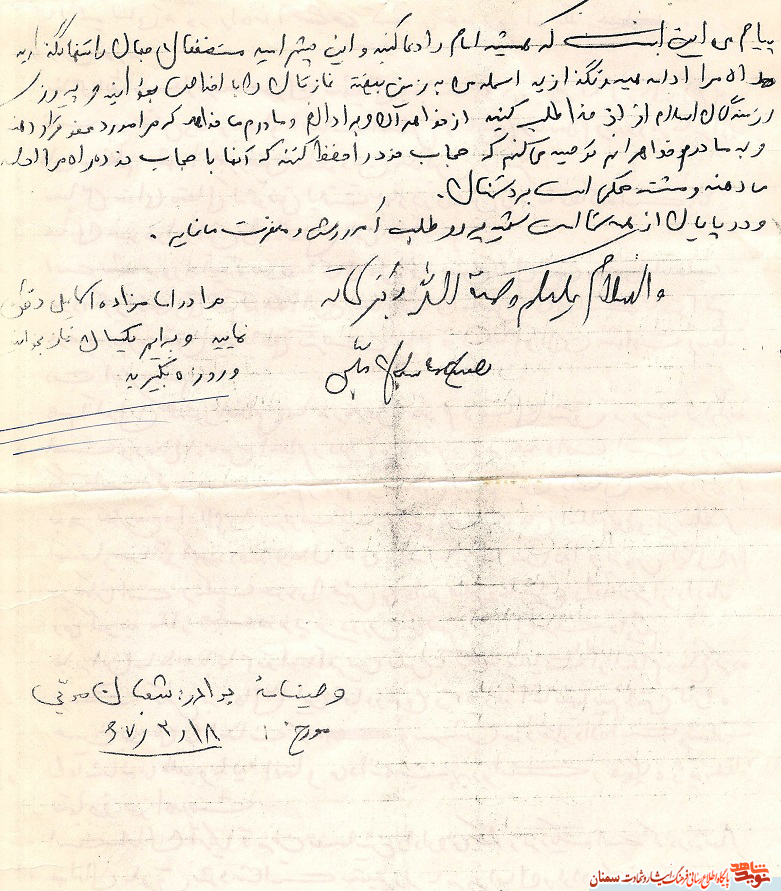 پیام من این است که همیشه امام را دعا کنید و این چشم امید مستضعفان جهان را تنها نگذارید
راه مرا ادامه دهید نگذارید اسلحه من به زمین بیفتد نمازتان را با اخلاص بخوانید و پیروزی
رزمندگان اسلام از خدا طلب کنید از خواهران و برادرانم و مادرم می خواهم که مرا مورد عفو قرار دهند
و به مادرم و خواهرانم توصیه می کنم که حجاب خود را حفظ کنند که آنها با حجاب خود راه مرا ادامه
ما دهند و مشت محکمی است بر دشمنان.
و در پایان از همه شما امت شهید پرور طلب آمرزش و مغفرت می نمایم.
والسلام علیکم و رحمة الله و برکاته
مرا در امامزاده اسماعیل دفن
نمایید و برایم یکسال نماز بخوانید
و روزه بگیرید
وصیتنامه برادر: شعبان
مورخ: ۶۷/۲/۱۸
نوید شاهد
پایگاه اطلاع رسانی فرهنگ ایثار و شهادت سمنان